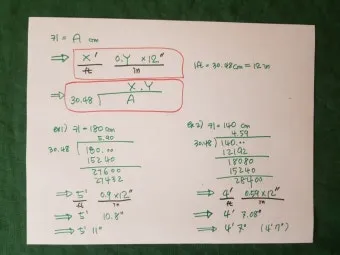 키 = A cm
⇒ X' 0.Y × 12"
ft in
1ft = 30.48cm = 12 in
⇒ X.Y
30.48 A
ex1) 키 = 180 cm
5.90
30.48 180.00
15240
27600
27432
⇒ 5' 0.9 × 12"
ft in
⇒ 5' 10.8"
⇒ 5' 11"
ex2) 키 = 140 cm
4.59
30.48 140.00
12192
18080
15240
28400
⇒ 4' 0.59 × 12"
ft in
⇒ 4' 7.08"
⇒ 4' 7" (4'7")